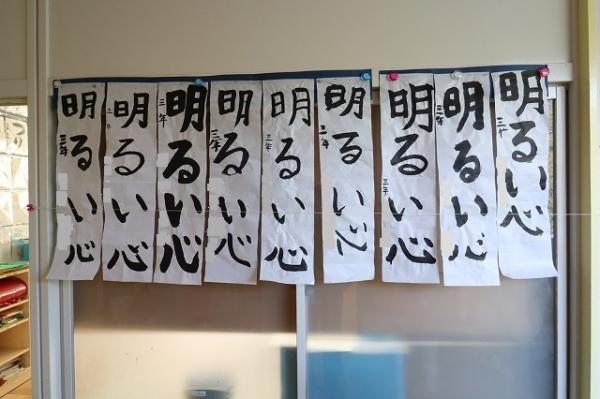 明るい心
三年
明るい心
三年
明るい心
三年
明るい心
三年
明るい心
三年
明るい心
三年
明るい心
三年
明るい心
明るい心
三年